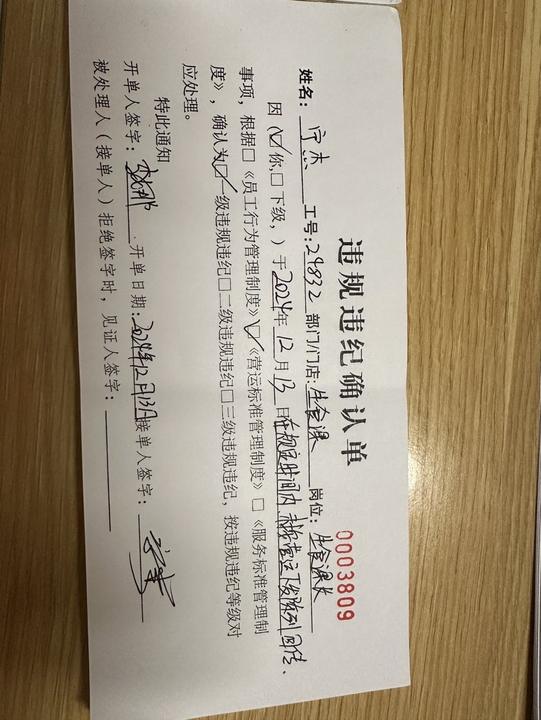 违规违纪确认单
0003809
姓名：宁杰 工号：29832 部门/门店：生食课 岗位：生食课长
因（☑你，□下级，）于2024年12月13日在规定时间内未按营运下发陈列回传、
事项，根据□《员工行为管理制度》☑《营运标准管理制度》□《服务标准管理制
度》，确认为☑一级违规违纪□二级违规违纪□三级违规违纪，按违规违纪等级对
应处理。
特此通知
开单人签字： 开单日期：2024年12月13日接单人签字：
被处理人（接单人）拒绝签字时，见证人签字：